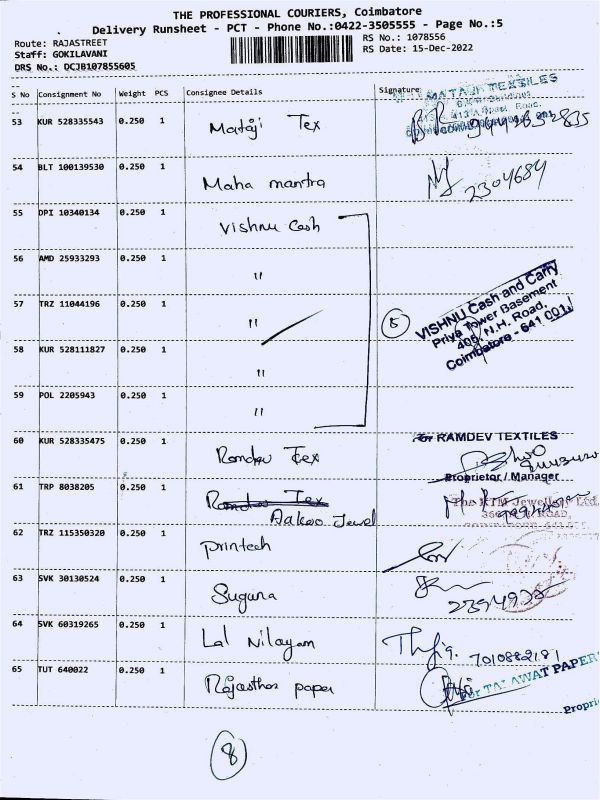 THE PROFESSIONAL COURIERS, Coimbatore
Delivery Runsheet - PCT - Phone No.:0422-3505555 - Page No.:5
Route: RAJASTREET
Staff: GOKILAVANI
DRS No.: DCJB107855605
RS No.: 1078556
RS Date: 15-Dec-2022
S No Consignment No Weight PCS Consignee Details Signature
MATAJI TEXTILES
53 KUR 528335543 0.250 1 Mataji Tex
54 BLT 100139530 0.250 1 Maha mantra 2304684
55 DPI 10340134 0.250 1 Vishnu Cash
56 AMD 25933293 0.250 1 "
57 TRZ 11044196 0.250 1 "
5
VISHNU Cash and Carry
Priya Tower Basement
405, N.H. Road,
Coimbatore - 641 001.
58 KUR 528111827 0.250 1 "
59 POL 2205943 0.250 1 "
60 KUR 528335475 0.250 1 Ramdev Tex
For RAMDEV TEXTILES
Proprietor / Manager
61 TRP 8038205 0.250 1 Ramdev Tex
The KTM Jewellery Ltd.
62 TRZ 115350320 0.250 1 Printech
63 SVK 30130524 0.250 1 Suguna
64 SVK 60319265 0.250 1 Lal Nilayam 7010882181
65 TUT 640022 0.250 1 Rajasthan paper
For TALAWAT PAPER
Proprie
8